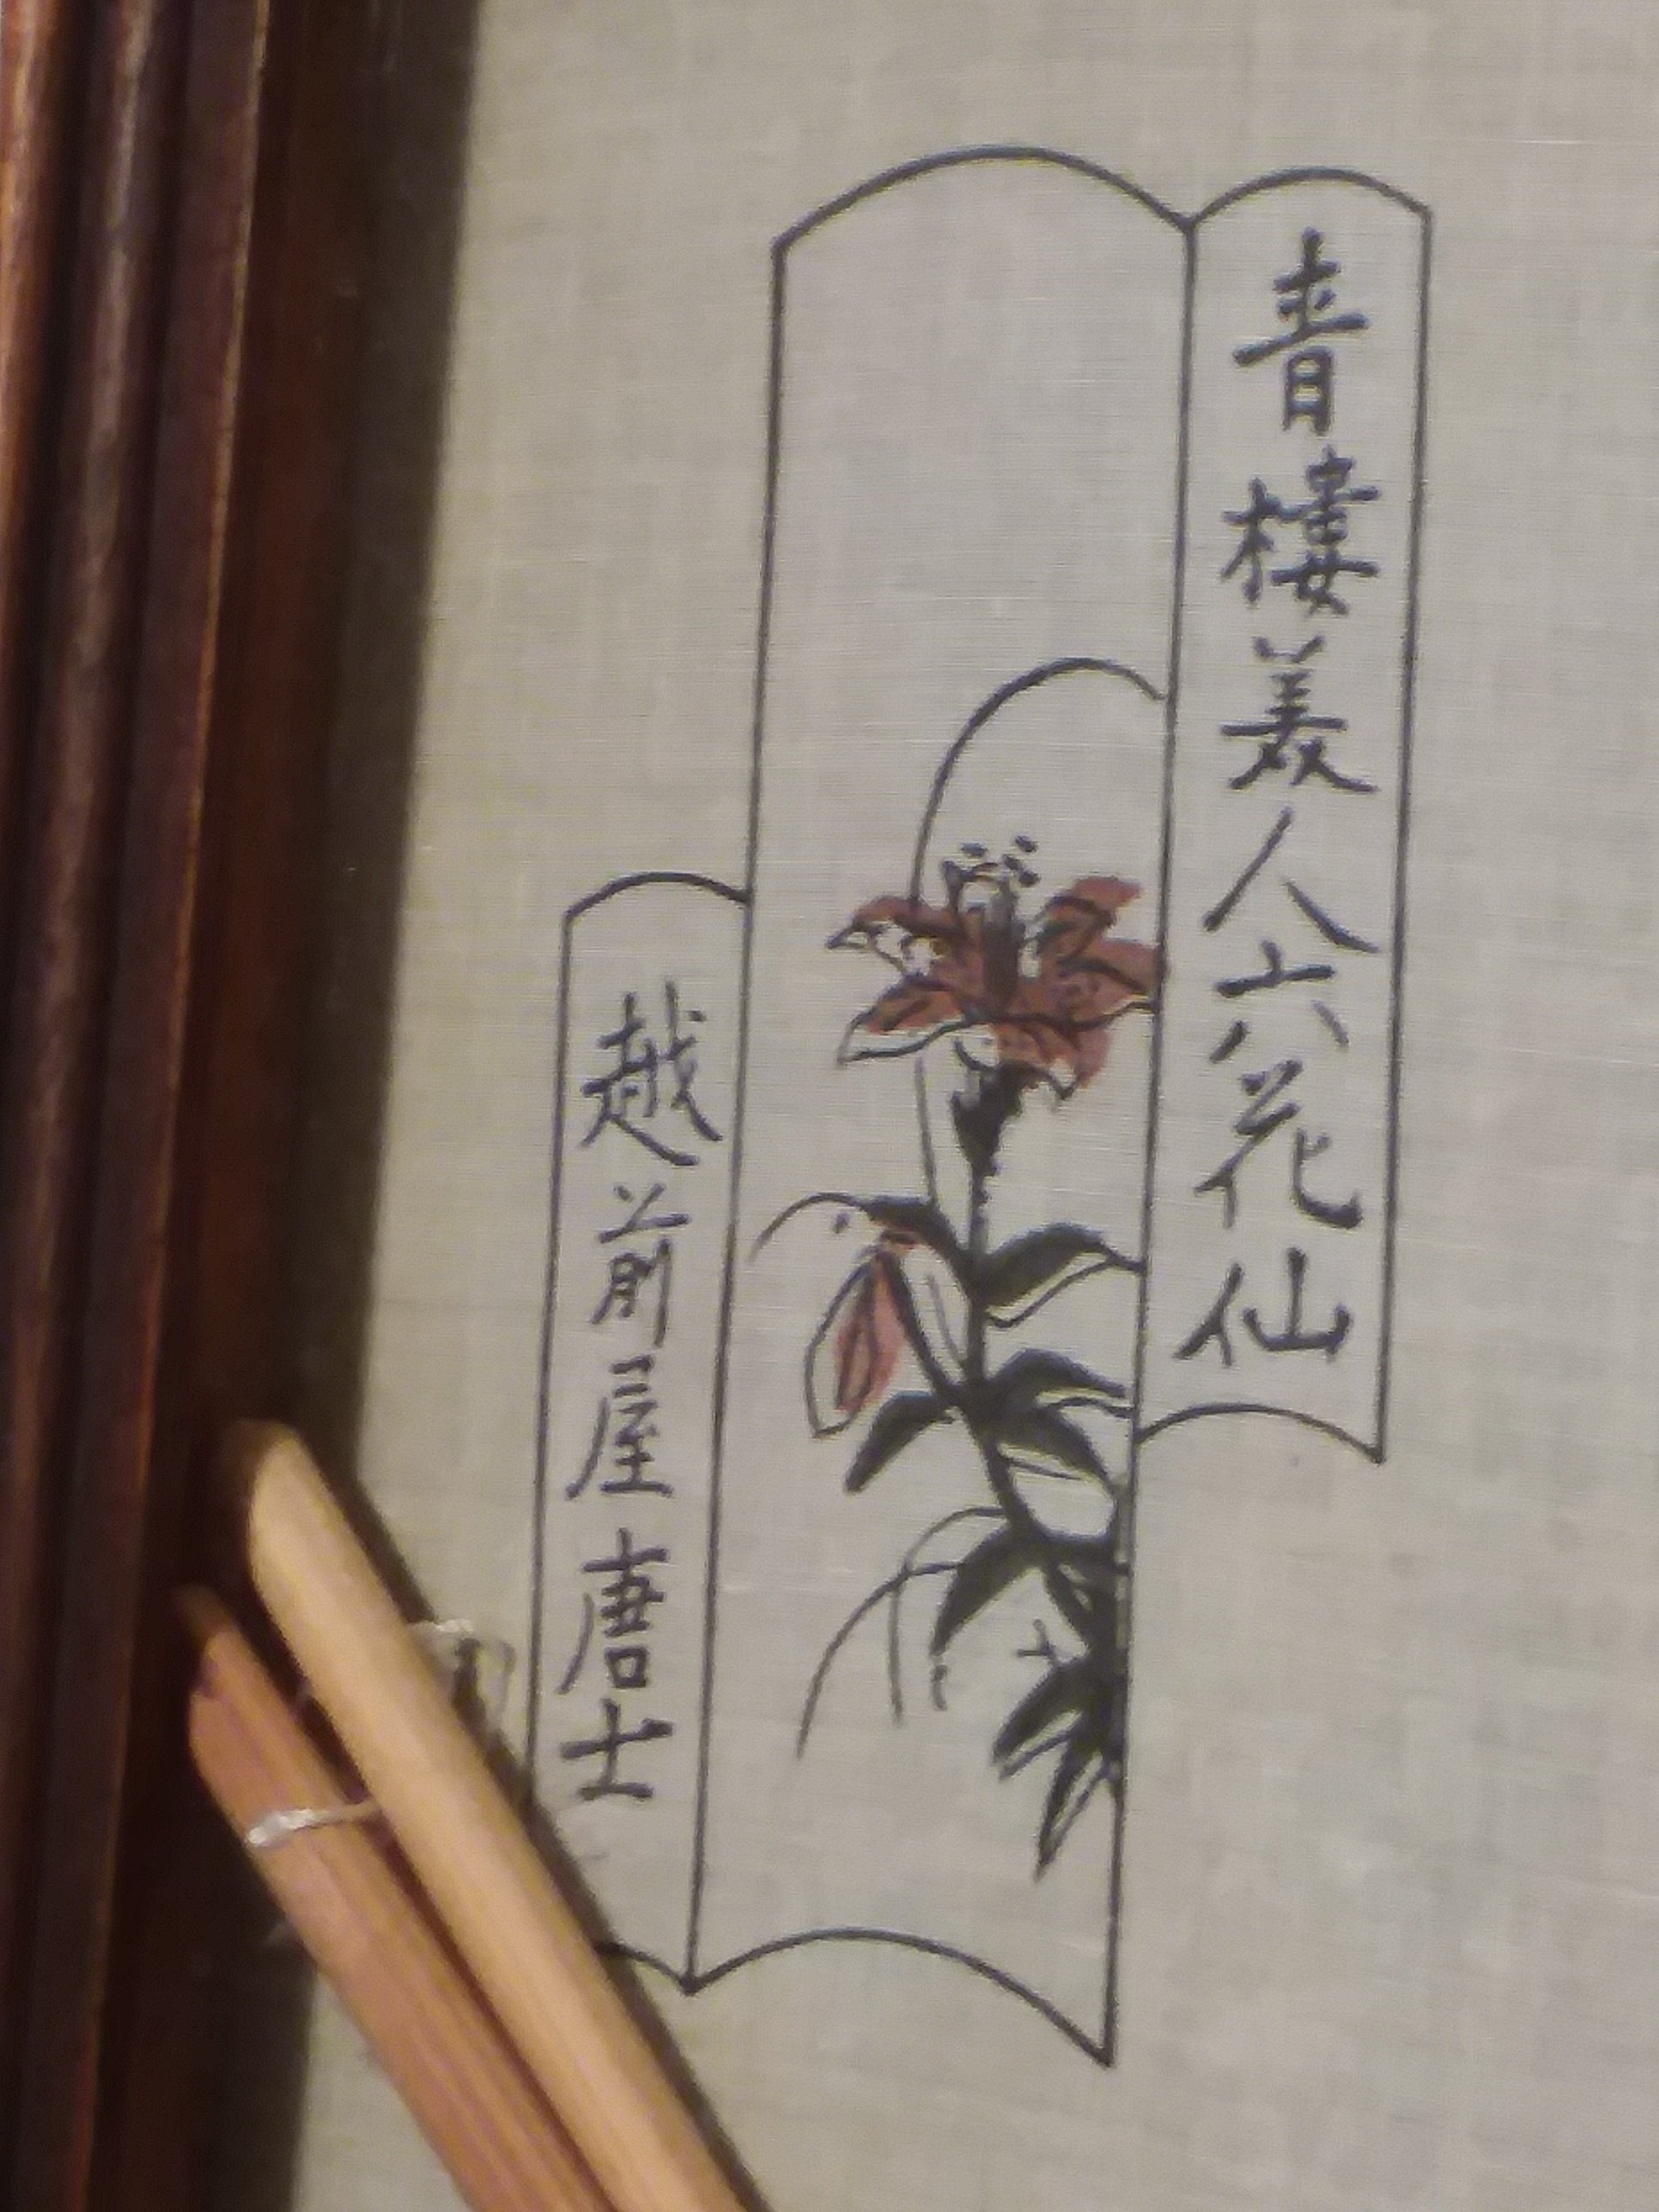 青樓美人六花仙
越前屋唐士